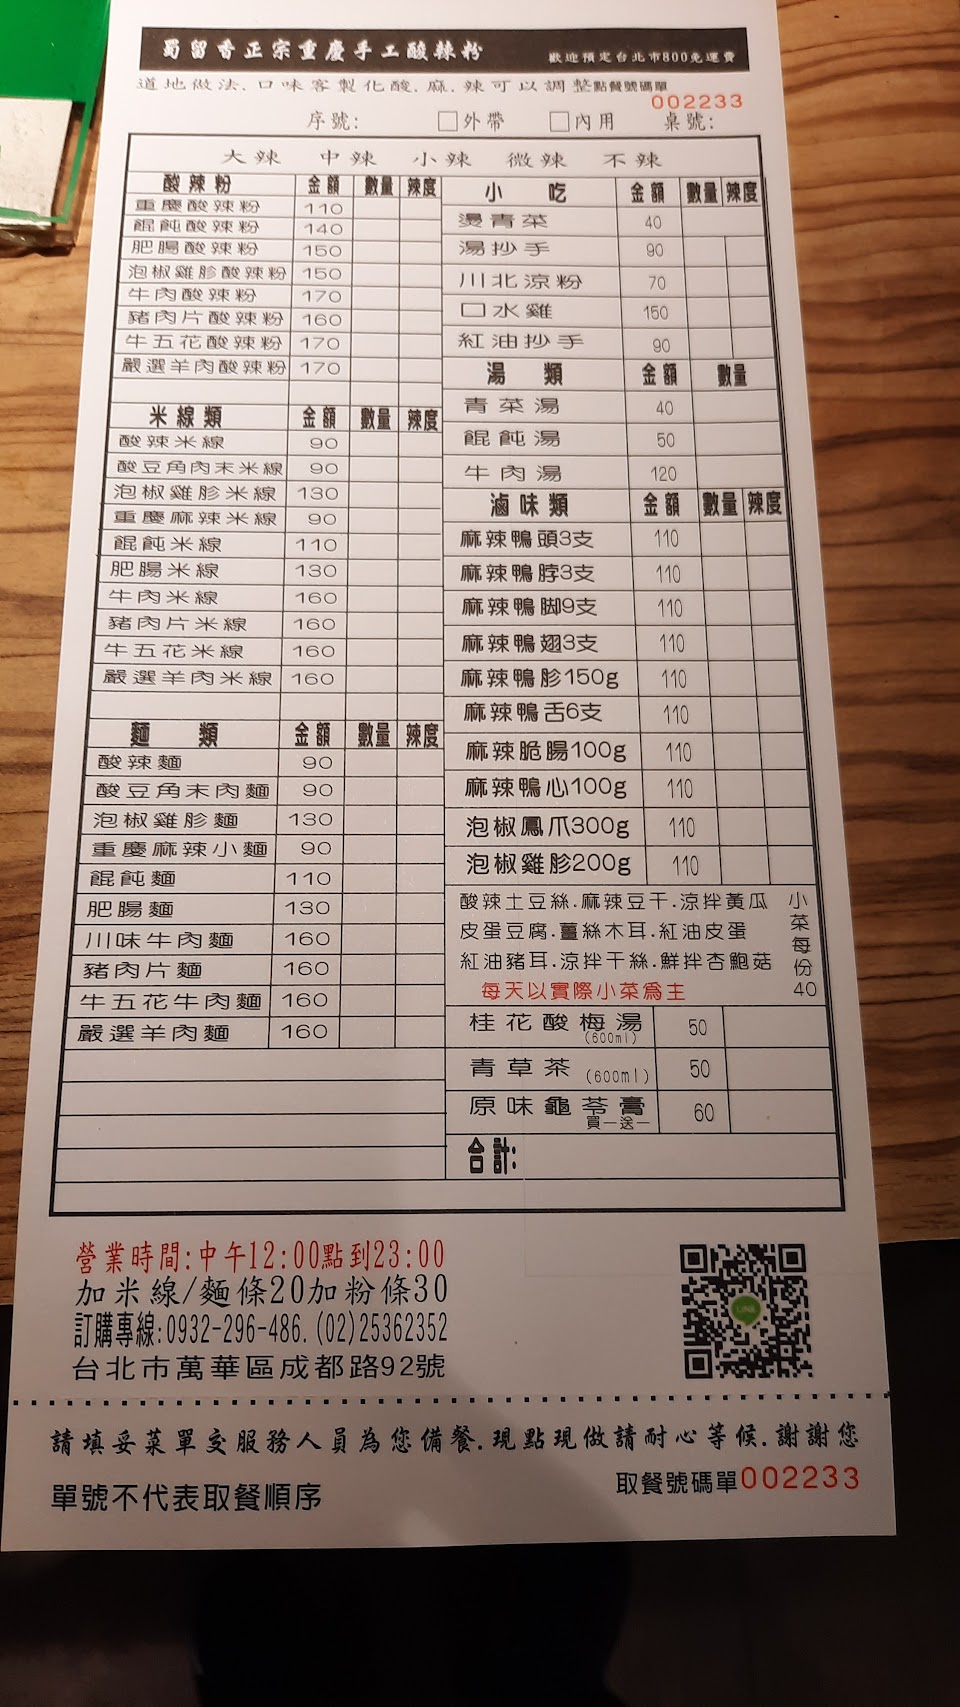 蜀留香正宗重慶手工酸辣粉 歡迎預定台北市800免運費
道地做法.口味客製化酸.麻.辣可以調整點餐號碼單
002233
序號: □外帶 □內用 桌號:
大辣 中辣 小辣 微辣 不辣
酸辣粉 金額 數量 辣度
重慶酸辣粉 110
餛飩酸辣粉 140
肥腸酸辣粉 150
泡椒雞胗酸辣粉 150
牛肉酸辣粉 170
豬肉片酸辣粉 160
牛五花酸辣粉 170
嚴選羊肉酸辣粉 170
米線類 金額 數量 辣度
酸辣米線 90
酸豆角肉末米線 90
泡椒雞胗米線 130
重慶麻辣米線 90
餛飩米線 110
肥腸米線 130
牛肉米線 160
豬肉片米線 160
牛五花米線 160
嚴選羊肉米線 160
麵類 金額 數量 辣度
酸辣麵 90
酸豆角末肉麵 90
泡椒雞胗麵 130
重慶麻辣小麵 90
餛飩麵 110
肥腸麵 130
川味牛肉麵 160
豬肉片麵 160
牛五花牛肉麵 160
嚴選羊肉麵 160
小吃 金額 數量 辣度
燙青菜 40
湯抄手 90
川北涼粉 70
口水雞 150
紅油抄手 90
湯類 金額 數量
青菜湯 40
餛飩湯 50
牛肉湯 120
滷味類 金額 數量 辣度
麻辣鴨頭3支 110
麻辣鴨脖3支 110
麻辣鴨脚9支 110
麻辣鴨翅3支 110
麻辣鴨胗150g 110
麻辣鴨舌6支 110
麻辣脆腸100g 110
麻辣鴨心100g 110
泡椒鳳爪300g 110
泡椒雞胗200g 110
酸辣土豆絲.麻辣豆干.涼拌黃瓜
皮蛋豆腐.薑絲木耳.紅油皮蛋
紅油豬耳.涼拌干絲.鮮拌杏鮑菇
每天以實際小菜為主
小菜每份40
桂花酸梅湯 50
(600ml)
青草茶(600ml) 50
原味龜苓膏 60
買一送一
合計:
營業時間:中午12:00點到23:00
加米線/麵條20加粉條30
訂購專線:0932-296-486.(02)25362352
台北市萬華區成都路92號
LINE
請填妥菜單交服務人員為您備餐.現點現做請耐心等候.謝謝您
取餐號碼單002233
單號不代表取餐順序